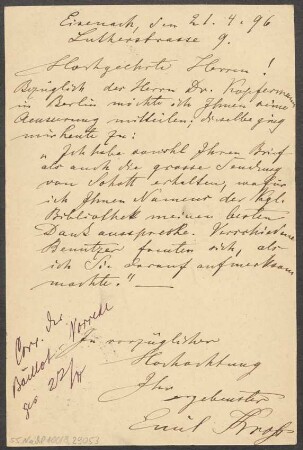 Eisenach, den 21. 4. 96
Lutherstrasse 9.
Hochgeehrte Herren!
Bezüglich der Herrn Dr. Kopfermann
in Berlin möchte ich Ihnen eine
Äusserung mitteilen; derselbe ging
mir heute zu:
"Ich habe sowohl Ihren Brief
als auch die grosse Sendung
von Schott erhalten, wofür
ich Ihnen Namens der Kgl.
Bibliothek meinen besten
Dank ausspreche. Verschiedene
Benutzer freuten sich, als
ich Sie darauf aufmerksam
machte." —
In vorzüglicher
Hochachtung
Ihr
ergebenster
Emil
Corr. der